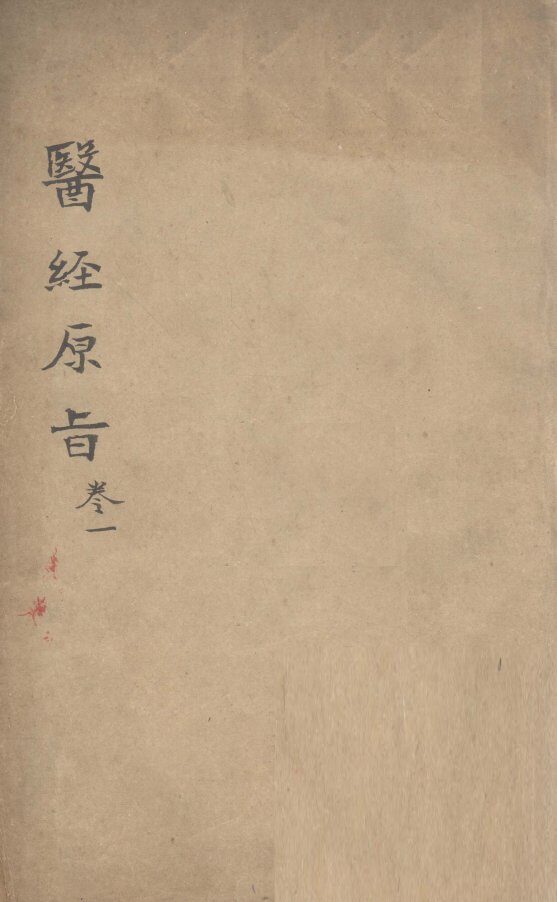 醫経原旨
卷一